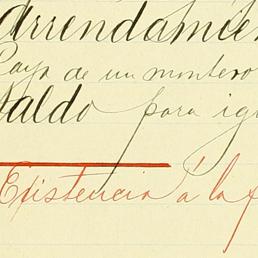 Arrendamien
Caya de un montero
Saldo para igu
Existencia a la f